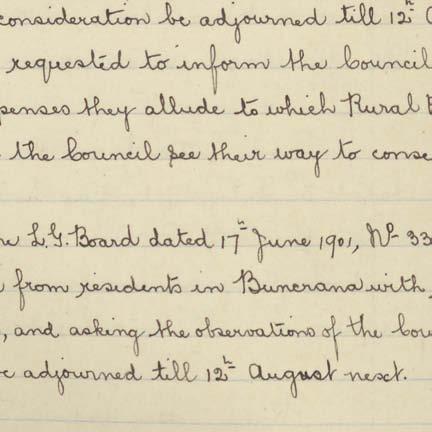 consideration be adjourned till 12th
requested to inform the Council
penses they allude to which Rural
the Council see their way to conse
L.G. Board dated 17th June 1901, No 33
from residents in Buncrana with
, and asking the observations of the Cou
adjourned till 12th August next.